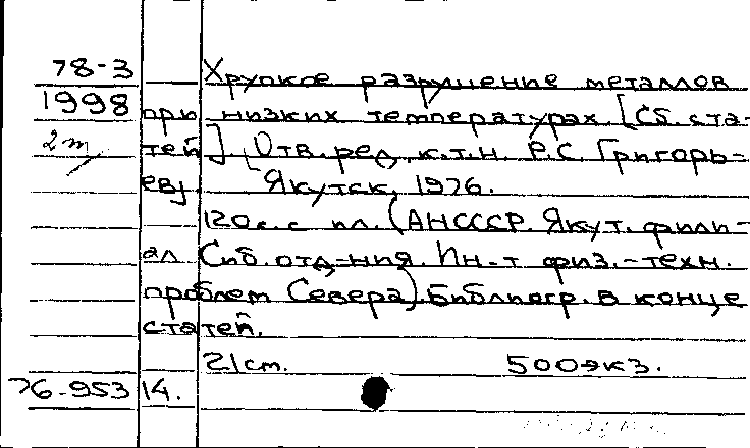 78-3 Хрупкое разрушение металлов
1998 при низких температурах. [Сб. ста-
2 т тей]. (Отв. ред. к.т.н. Р.С. Григорь-
ев). Якутск, 1976.
120 с. с ил. (АН СССР. Якут. фили-
ал Сиб. отд-ния. Ин-т физ.-техн.
проблем Севера). Библиогр. в конце
статей.
21 см. 500 экз.
76-953 14.